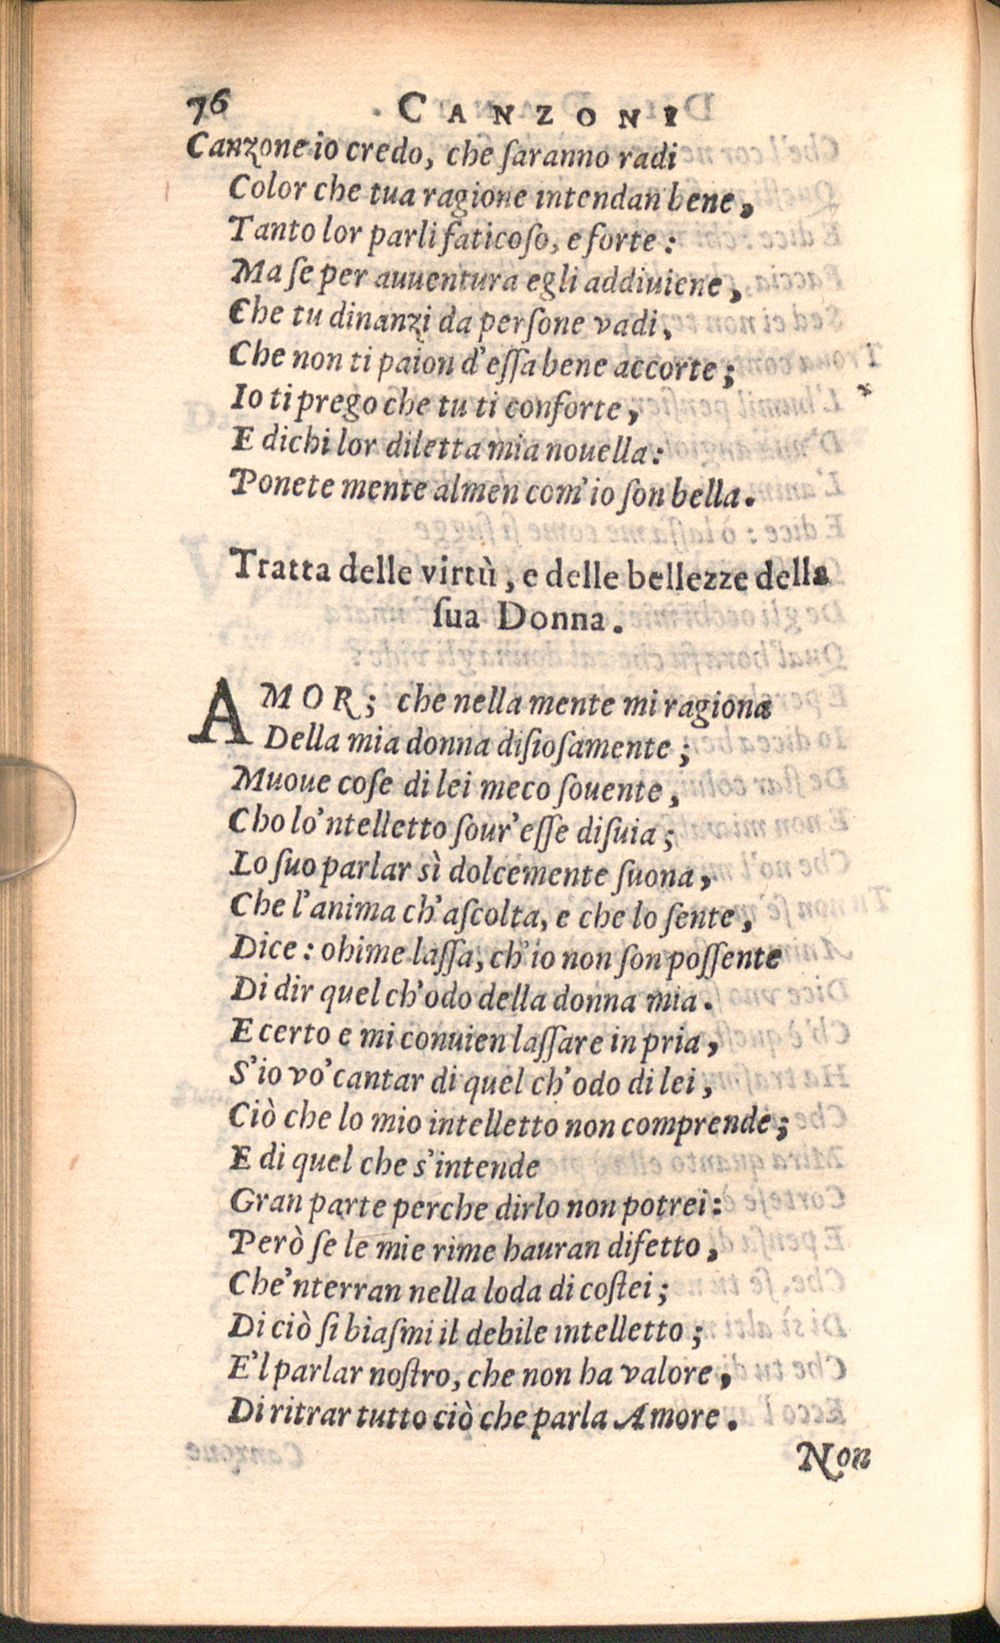 76 CANZONI
Canzone io credo, che ſaranno radi
Color che tua ragione intendan bene,
Tanto lor parli faticoſo, e forte:
Ma ſe per auuentura egli addiuiene,
Che tu dinanzi da perſone vadi,
Che non ti paion d'eſſa bene accorte;
Io ti prego che tu ti conforte,
E dichi lor diletta mia nouella:
Ponete mente almen com'io ſon bella.
Tratta delle virtù, e delle bellezze della
ſua Donna.
AMOR; che nella mente mi ragiona
Della mia donna diſioſamente;
Muoue coſe di lei meco ſouente,
Cho lo'ntelletto ſour'eſſe diſuia;
Lo ſuo parlar sì dolcemente ſuona,
Che l'anima ch'aſcolta, e che lo ſente,
Dice: ohime laſſa, ch'io non ſon poſſente
Di dir quel ch'odo della donna mia.
E certo e mi conuien laſſare in pria,
S'io vo' cantar di quel ch'odo di lei,
Ciò che lo mio intelletto non comprende;
E di quel che s'intende
Gran parte perche dirlo non potrei:
Però ſe le mie rime hauran difetto,
Che'nterran nella loda di coſtei;
Di ciò ſi biaſmi il debile intelletto;
E'l parlar noſtro, che non ha valore,
Di ritrar tutto ciò che parla Amore.
Non